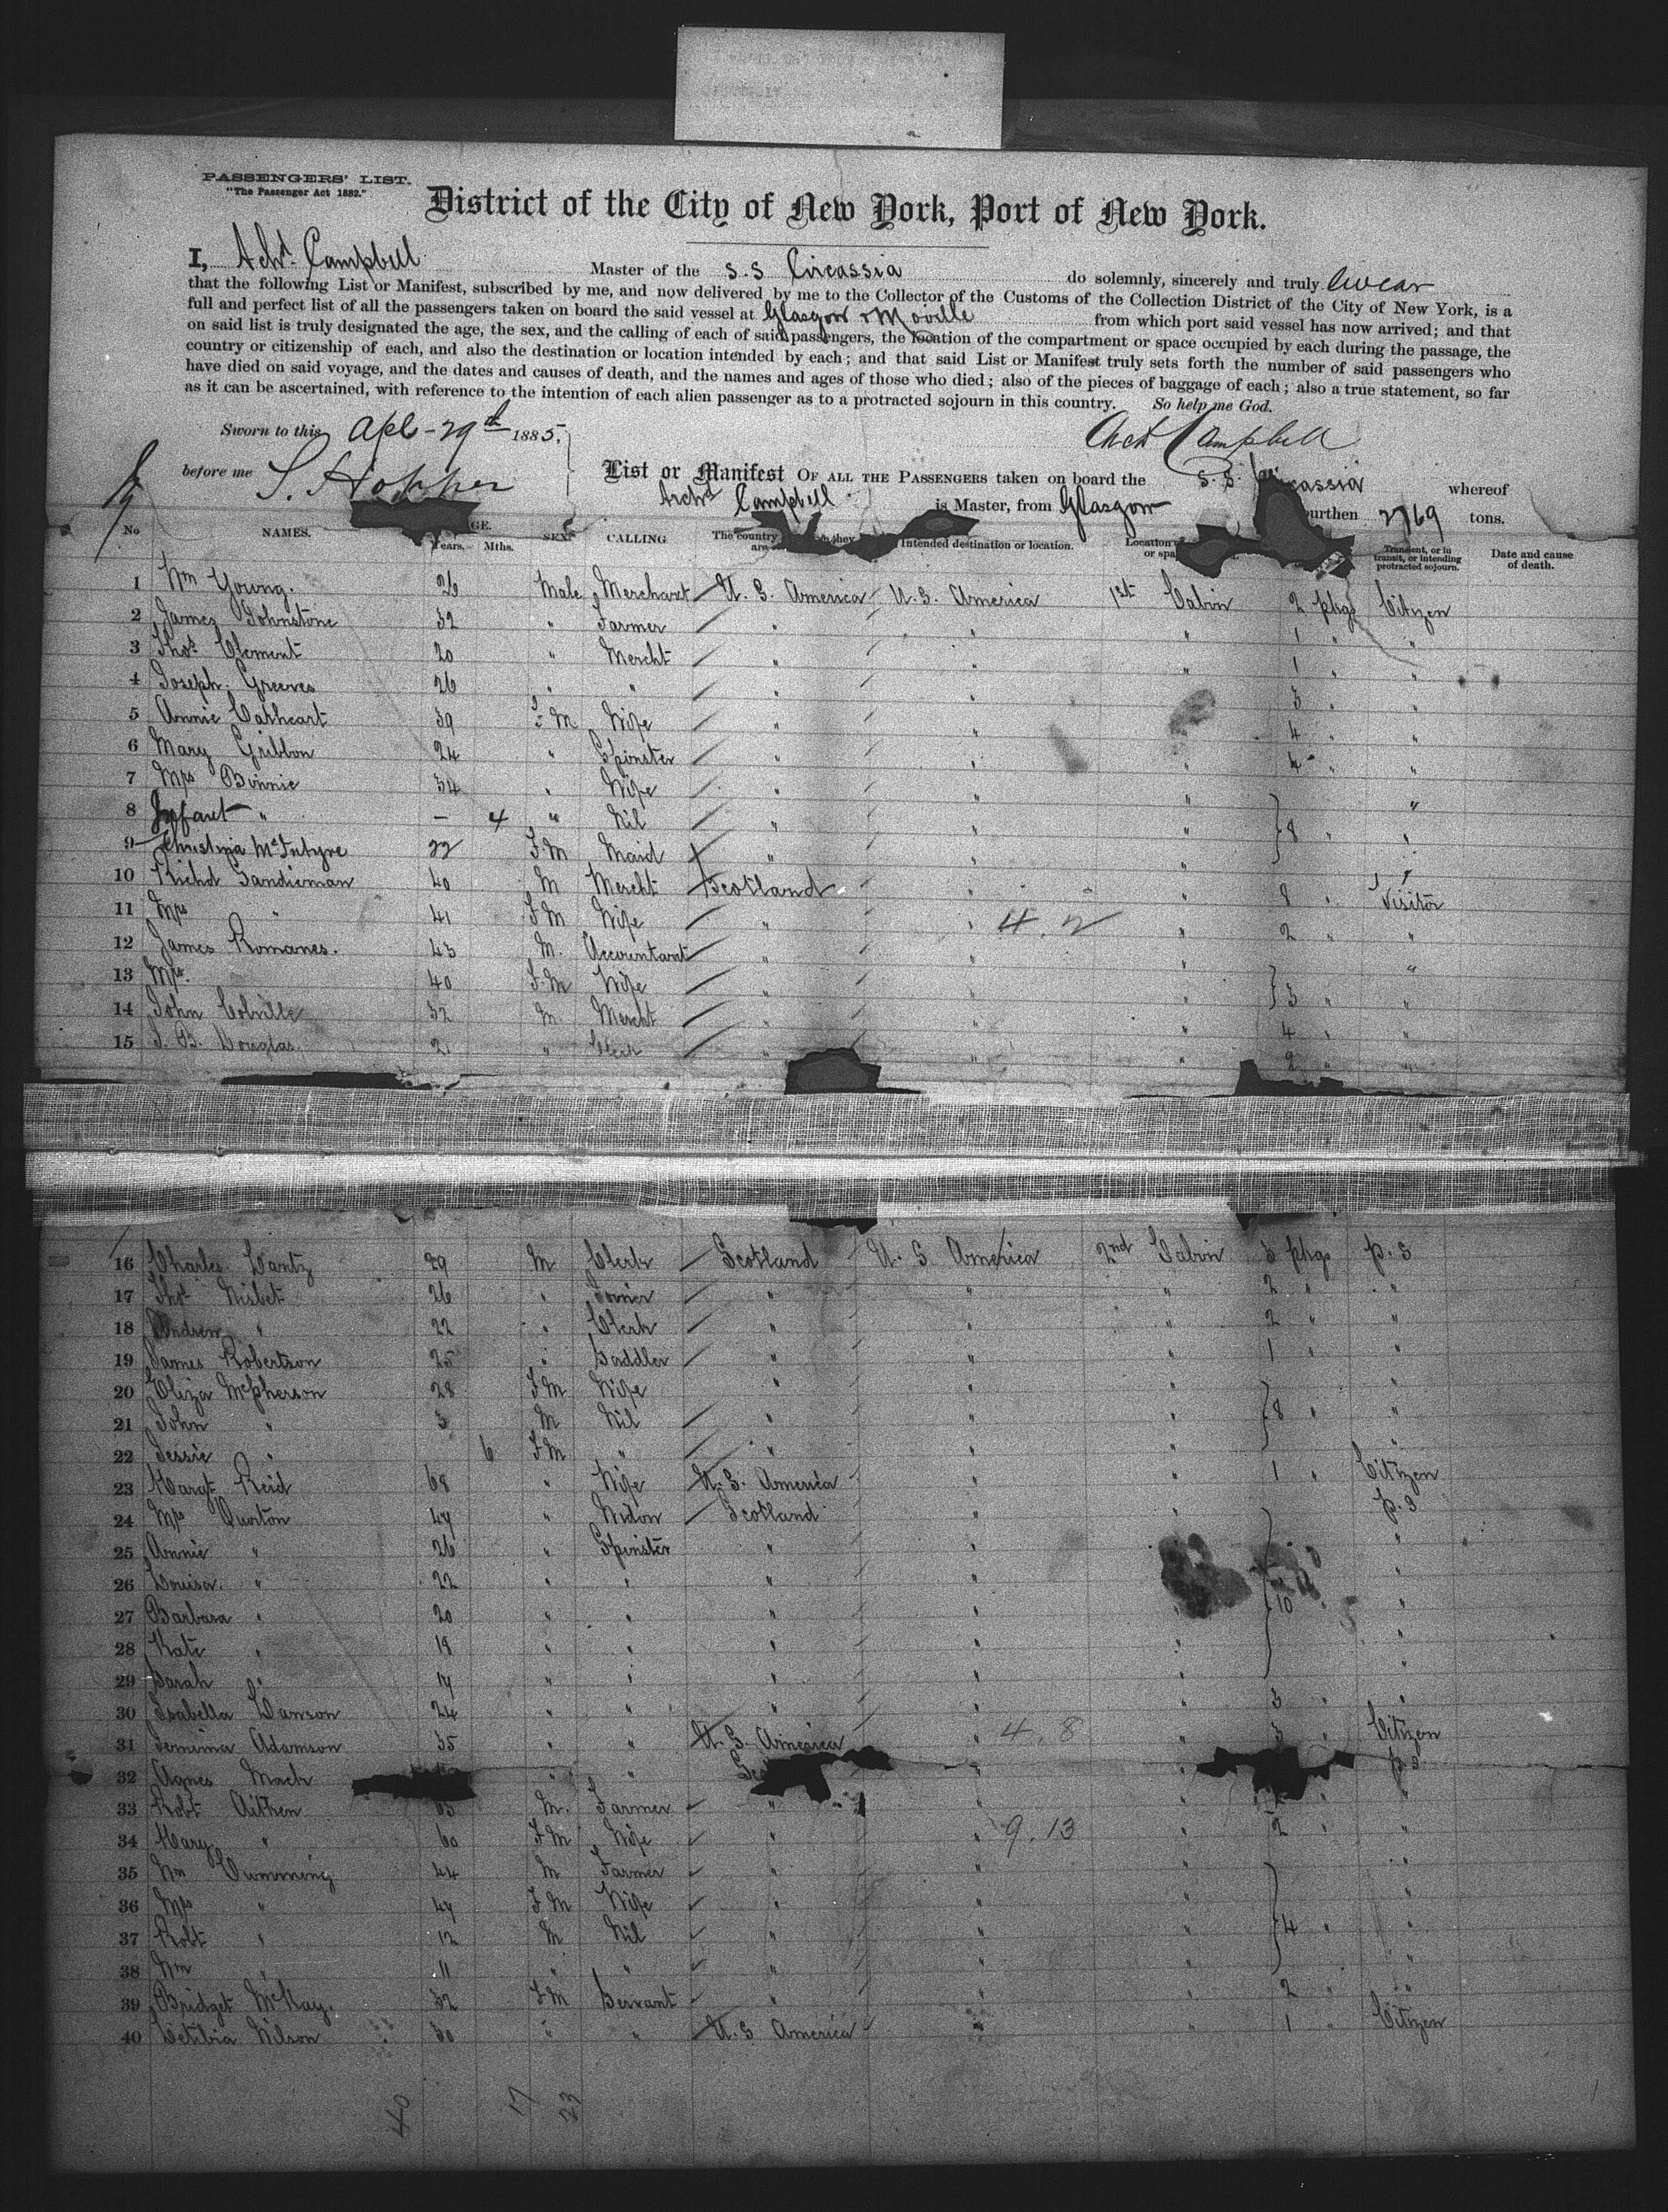 PASSENGERS' LIST.
"The Passenger Act 1882."
District of the City of New York, Port of New York.
I, Archd. Campbell Master of the S.S Circassia do solemnly, sincerely and truly Swear
that the following List or Manifest, subscribed by me, and now delivered by me to the Collector of the Customs of the Collection District of the City of New York, is a
full and perfect list of all the passengers taken on board the said vessel at Glasgow & Moville from which port said vessel has now arrived; and that
on said list is truly designated the age, the sex, and the calling of each of said passengers, the location of the compartment or space occupied by each during the passage, the
country or citizenship of each, and also the destination or location intended by each; and that said List or Manifest truly sets forth the number of said passengers who
have died on said voyage, and the dates and causes of death, and the names and ages of those who died; also of the pieces of baggage of each; also a true statement, so far
as it can be ascertained, with reference to the intention of each alien passenger as to a protracted sojourn in this country. So help me God.
Sworn to this Apl - 29th 1885, Archd Campbell
before me S. Hopper List or Manifest OF ALL THE PASSENGERS taken on board the S.S. Circassia whereof
Archd Campbell is Master, from Glasgow burthen 2769 tons.
No NAMES. AGE. Years. Mths. SEX CALLING The country they are Intended destination or location. Location or spa Transient, or in transit, or intending protracted sojourn. Date and cause of death.
1 Wm Young. 26 Male Merchant U.S. America U.S. America 1st Cabin 2 pkgs Citizen
2 James Johnstone 32 " Farmer " " " 1 " "
3 Thos. Clement 20 " Mercht " " " 1 " "
4 Joseph Greeves 26 " " " " " 3 " "
5 Annie Cathcart 39 F M Wife " " " 4 " "
6 Mary Gribbon 24 " Spinster " " " 4 " "
7 Mrs Binnie 34 " Wife " " " "
8 Infant " — 4 " Nil " " " 8 " "
9 Christina McIntyre 22 F M Maid " " " "
10 Richd Sandieman 40 M Mercht Scotland " " 8 " Visitor
11 Mrs " 41 F M Wife " " 4.2 " 2 " "
12 James Romanes. 43 M. Accountant " " " "
13 Mrs. 40 F M Wife " " " 3 " "
14 John Colville 32 M. Mercht " " " 4 " "
15 J. B. Douglas. 21 " Clerk " " " 2 " "
16 Charles Lantz 29 M Clerk Scotland U.S America 2nd Cabin 3 pkgs p.s
17 Thos Nisbet 26 " Joiner " " " 2 " "
18 Andrew " 22 " Clerk " " " 2 " "
19 James Robertson 25 " Saddler " " " 1 " "
20 Eliza McPherson 28 F M Wife " " " "
21 John " 3 M Nil " " " 8 " "
22 Jessie " 6 F M " " " " "
23 Margt Reid 68 " Wife U.S. America " " 1 " Citizen
24 Mrs 47 " Widow Scotland " " p.s
25 Annie " 26 " Spinster " " " "
26 Louisa " 22 " " " " " "
27 Barbara " 20 " " " " " 10 " "
28 Kate " 18 " " " " " "
29 Sarah " 14 " " " " " "
30 Isabella Dawson 24 " " " " " 3 " "
31 Jemima Adamson 35 " " U.S. America " 4.8 " 3 " Citizen
32 Agnes Mack " " " " p.s
33 Robt Aitken M. Farmer " " " "
34 Mary " 60 F M Wife " " 9.13 " 2 " "
35 Wm Cumming 44 M Farmer " " " "
36 Mrs " 47 F M Wife " " " "
37 Robt " 12 M Nil " " " 4 " "
38 Wm " 11 " " " " " "
39 Bridget McKay. 32 F M Servant " " " 2 " "
40 Wilson 30 " " U.S America " " 1 " Citizen
40 17 23